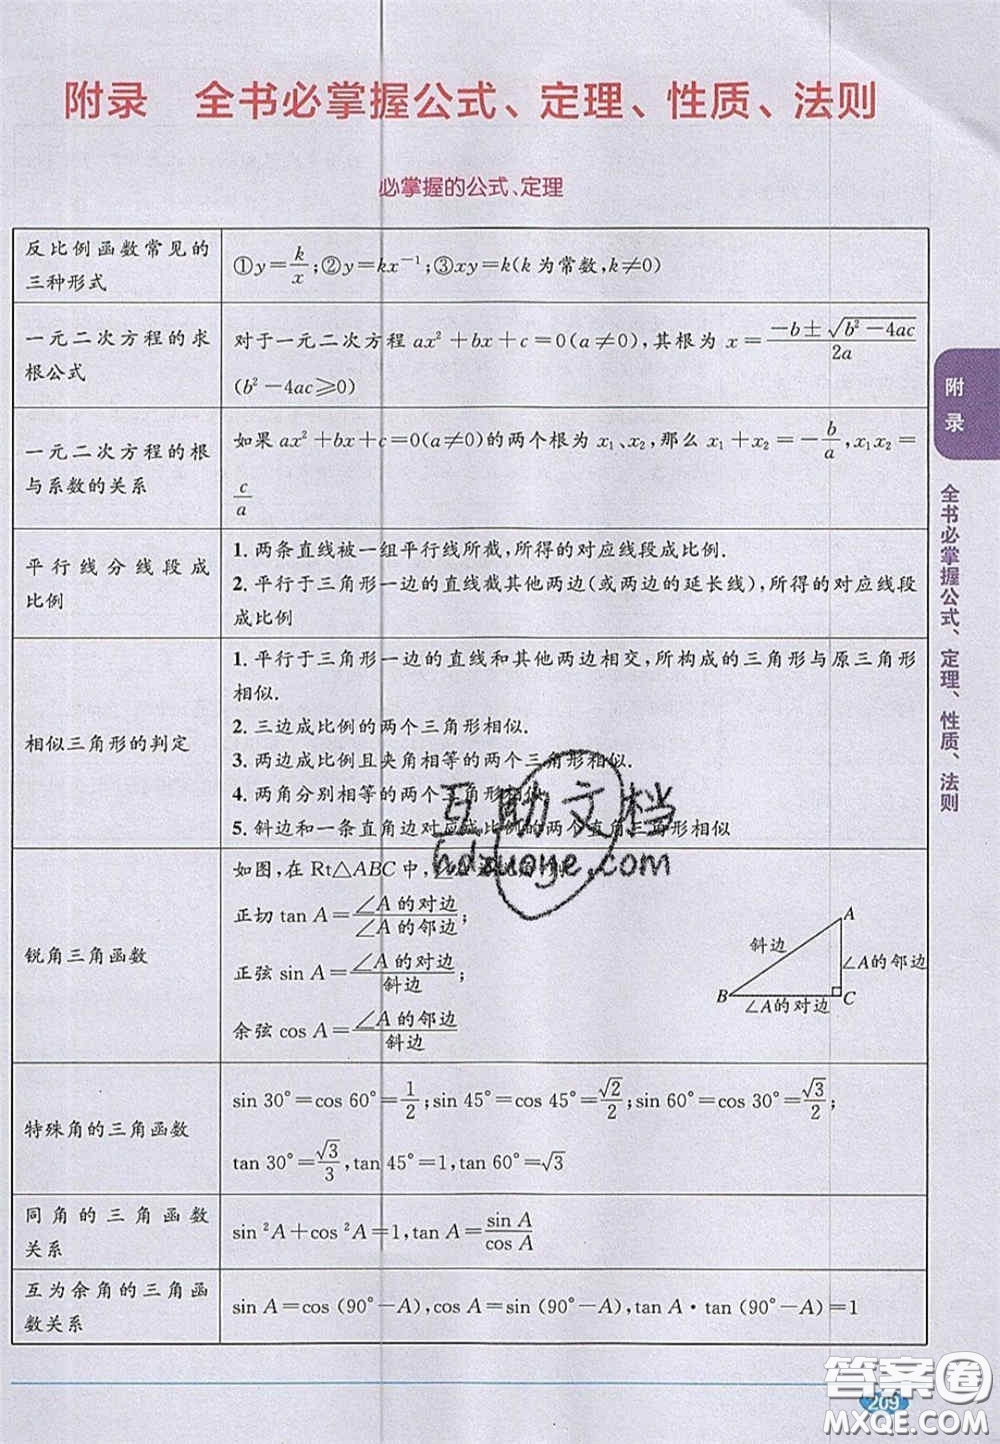 附录 全书必掌握公式、定理、性质、法则
必掌握的公式、定理
反比例函数常见的
三种形式
①y=k/x;②y=kx⁻¹;③xy=k(k为常数,k≠0)
一元二次方程的求
根公式
对于一元二次方程 ax²+bx+c=0(a≠0),其根为 x=(-b±√(b²-4ac))/2a
(b²-4ac≥0)
一元二次方程的根
与系数的关系
如果 ax²+bx+c=0(a≠0)的两个根为 x₁、x₂,那么 x₁+x₂=-b/a,x₁x₂=
c/a
平行线分线段成
比例
1. 两条直线被一组平行线所截,所得的对应线段成比例.
2. 平行于三角形一边的直线截其他两边(或两边的延长线),所得的对应线段
成比例
相似三角形的判定
1. 平行于三角形一边的直线和其他两边相交,所构成的三角形与原三角形
相似.
2. 三边成比例的两个三角形相似.
3. 两边成比例且夹角相等的两个三角形相似.
4. 两角分别相等的两个三角形相似.
5. 斜边和一条直角边对应成比例的两个直角三角形相似
锐角三角函数
如图,在 Rt△ABC 中,
正切 tan A=∠A 的对边/∠A 的邻边;
正弦 sin A=∠A 的对边/斜边;
余弦 cos A=∠A 的邻边/斜边
A
斜边
∠A的邻边
B
C
∠A的对边
特殊角的三角函数
sin 30°=cos 60°=1/2;sin 45°=cos 45°=√2/2;sin 60°=cos 30°=√3/2;
tan 30°=√3/3,tan 45°=1,tan 60°=√3
同角的三角函数
关系
sin²A+cos²A=1,tan A=sin A/cos A
互为余角的三角函
数关系
sin A=cos (90°-A),cos A=sin (90°-A),tan A·tan (90°-A)=1
附
录
全书必掌握公式、定理、性质、法则
互助文档
hdzuoye.com
209
答案圈
MXQE.COM